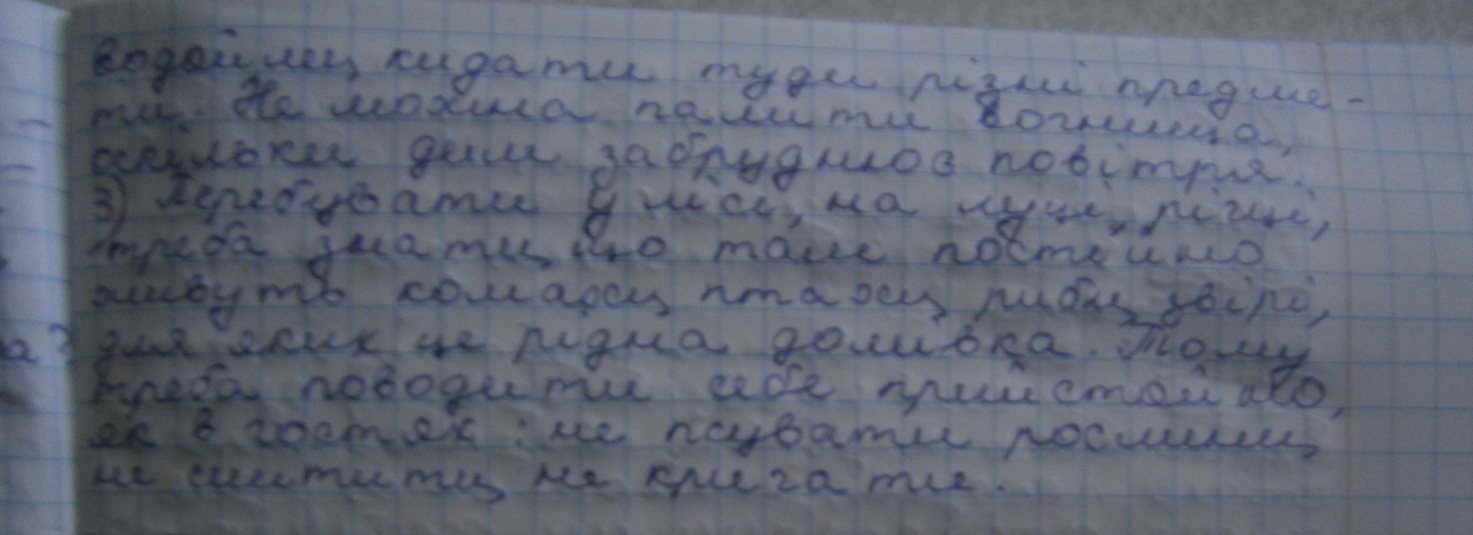 водойми, кидати туди різні предме-
ти. Не можна палити вогнища,
оскільки дим забруднює повітря.
3) Перебувати у лісі, на луці, річці,
треба знати, що там постійно
живуть комахи, птахи, риби, звірі,
для яких це рідна домівка. Тому
треба поводити себе пристойно,
як в гостях: не псувати рослини,
не смітити, не кричати.